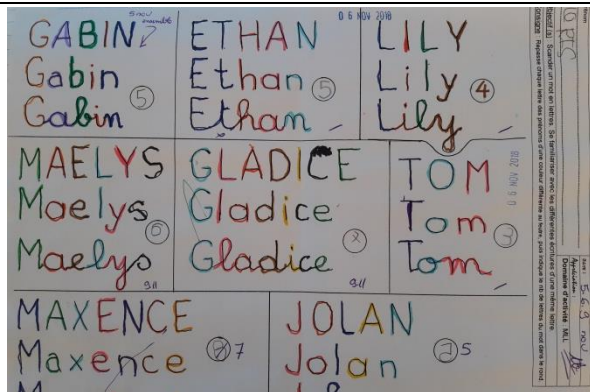 GABIN
5 nov
ensemble
Gabin
Gabin
5
ETHAN
06 NOV 2018
Ethan
Ethan
5
LILY
Lily
Lily
4
MAELYS
Maelys
Maelys
6
9/11
GLADICE
Gladice
Gladice
9/11
TOM
Tom
Tom
3
MAXENCE
Maxence
7
JOLAN
Jolan
5
Objectif (s) : Scander un mot en lettres. Se familiariser avec les différentes écritures d'une même lettre.
Consigne : Repasse chaque lettre des prénoms d'une couleur différente au feutre, puis indique le nb de lettres du mot dans le rond.
Date : 5.6.9 nov
Appréciation :
Domaine d'activité : MLL